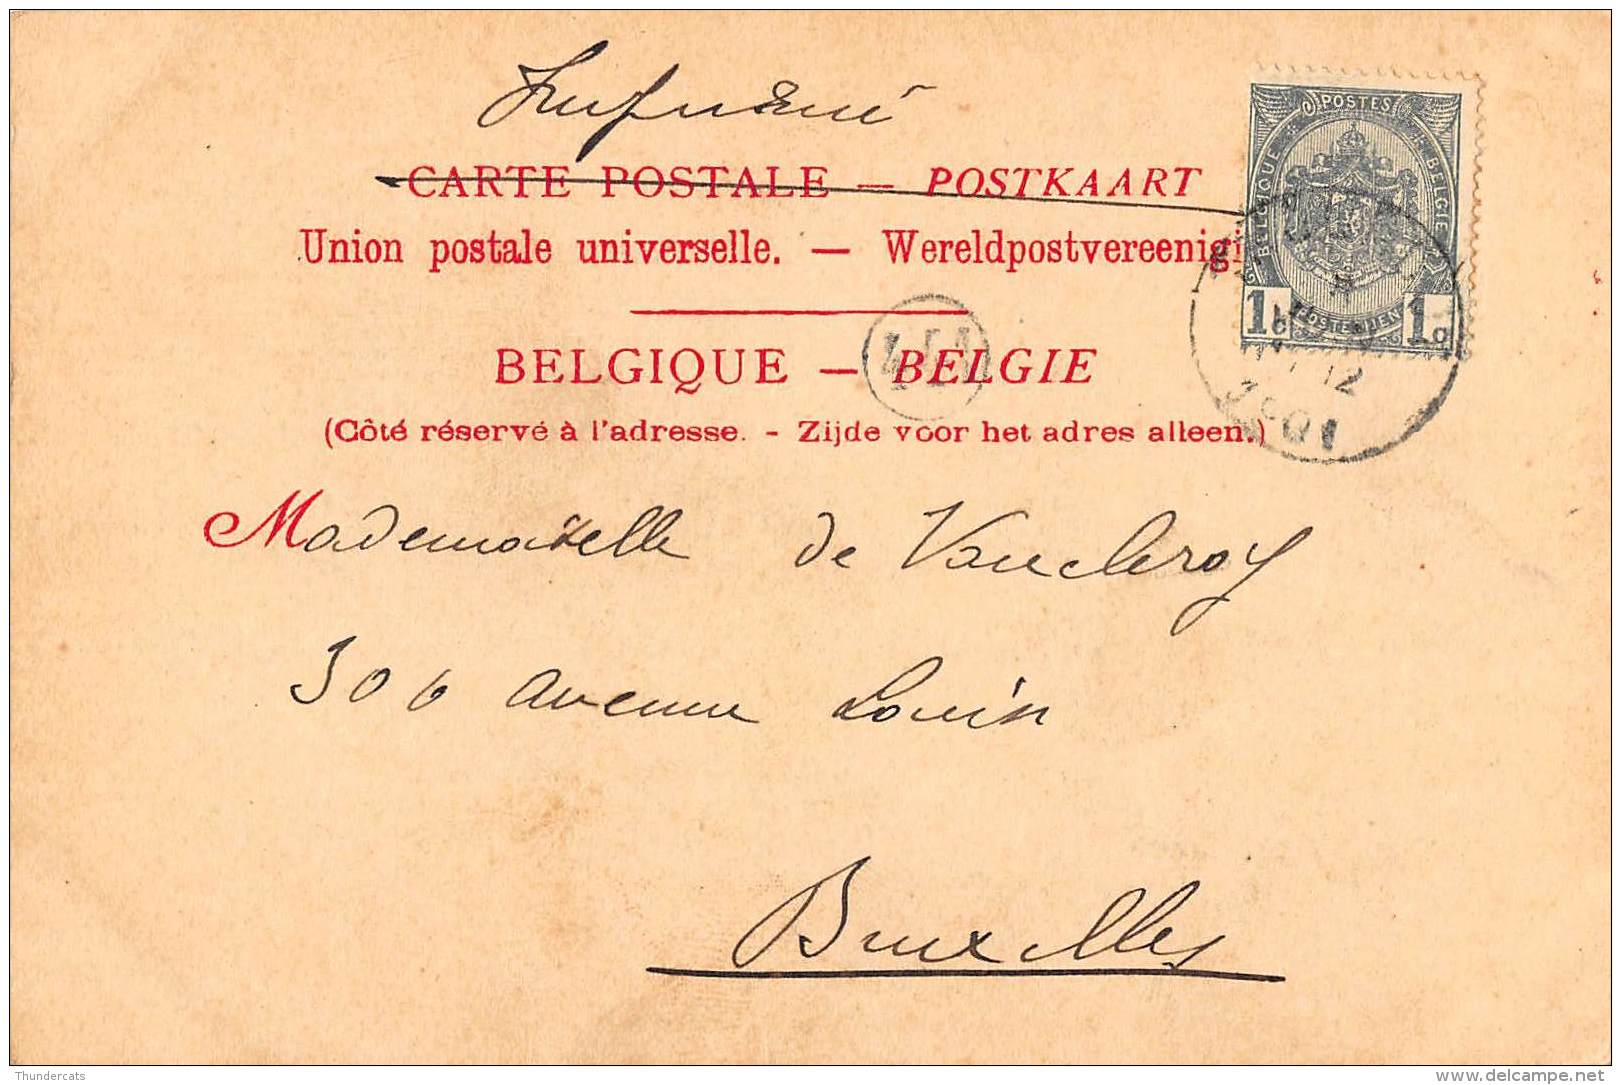 Imprimé
CARTE POSTALE — POSTKAART
Union postale universelle. — Wereldpostvereenigi
BELGIQUE — BELGIE
(Côté réservé à l'adresse. - Zijde voor het adres alleen.)
POSTES
BELGIQUE
BELGIE
1c 1c
POSTERIJEN
12
1901
Mademoiselle de Vancleroy
306 avenue Louise
Bruxelles
Thundercats
www.delcampe.net